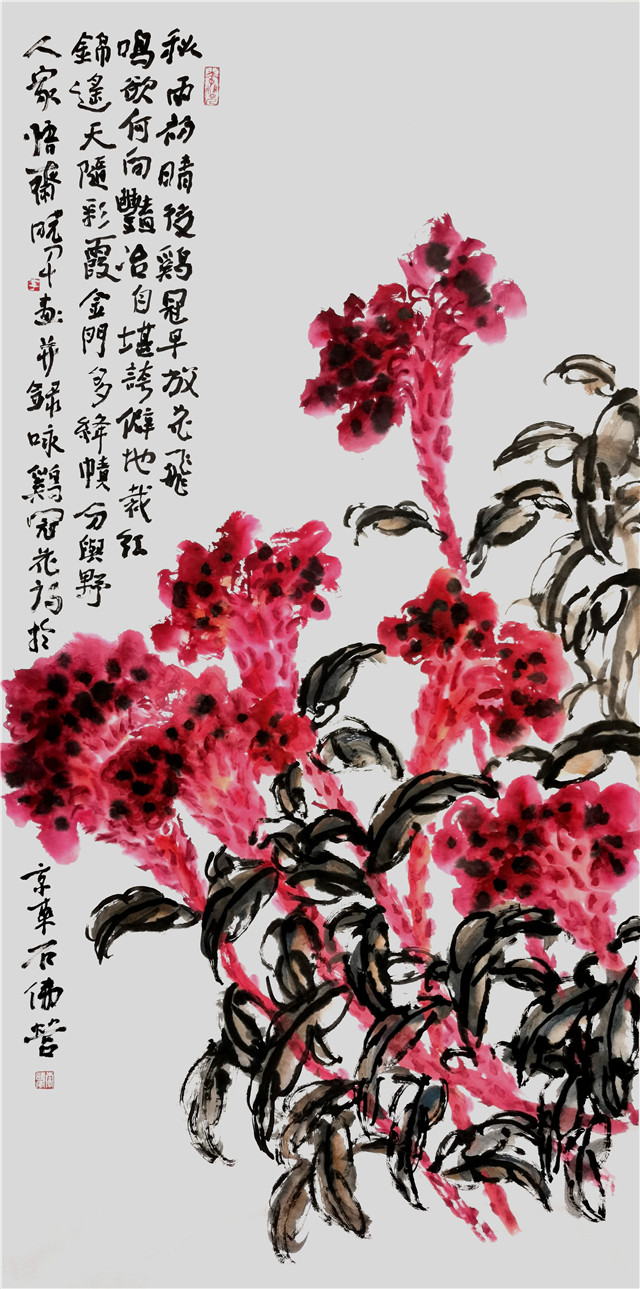 秋雨初晴後鷄冠早放花飛
鳴欲何向豔冶自堪誇僻地栽紅
錦遙天隨彩霞金門多絳幘分與野
人家悟齋曉畫并録咏鷄冠花詩於
京東石佛營